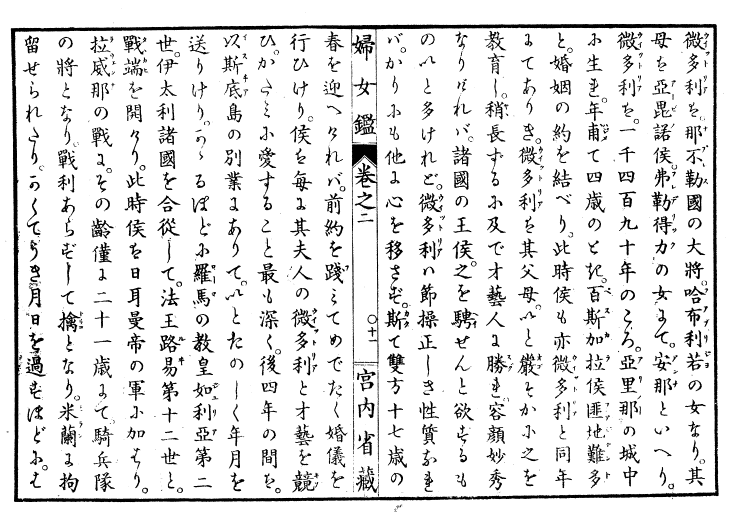 微多利は。那不勒國の大將。哈布利若の女なり。其
母は亞毘諾侯。弗勒得力の女にて。安那といへり。
微多利は。一千四百九十年のころ。亞里那の城中
に生れ。年甫て四歳のとき。百斯加拉侯匪地難多
と。婚姻の約を結べり。此時侯も亦微多利と同年
にてありき。微多利は其父母。いと嚴そかに之を
教育し。稍長ずるに及で才藝人に勝れ。容顔妙秀
なりければ。諸國の王侯。之を聘せんと欲するも
のいと多けれど。微多利ハ節操正しき性質なれ
ば。かりにも他に心を移さず。斯て雙方十七歳の
婦女鑑 卷之二 〇十一 宮内省藏
春を迎へければ。前約を踐みてめでたく婚儀を
行ひけり。侯は毎に其夫人の微多利と才藝を競
ひ。かたみに愛すること最も深く。後四年の間は。
以斯底島の別業にありて。いとたのしく年月を
送りけり。かゝるほどに羅馬の教皇如利亞第二
世。伊太利諸國を合從して。法王路易第十二世と。
戰端を開けり。此時侯は日耳曼帝の軍に加はり。
拉威那の戰に。その齡僅に二十一歳にて。騎兵隊
の將となり。戰利あらずして擒となり。米蘭に拘
留せられたり。かくてうき月日を過すほどに。は